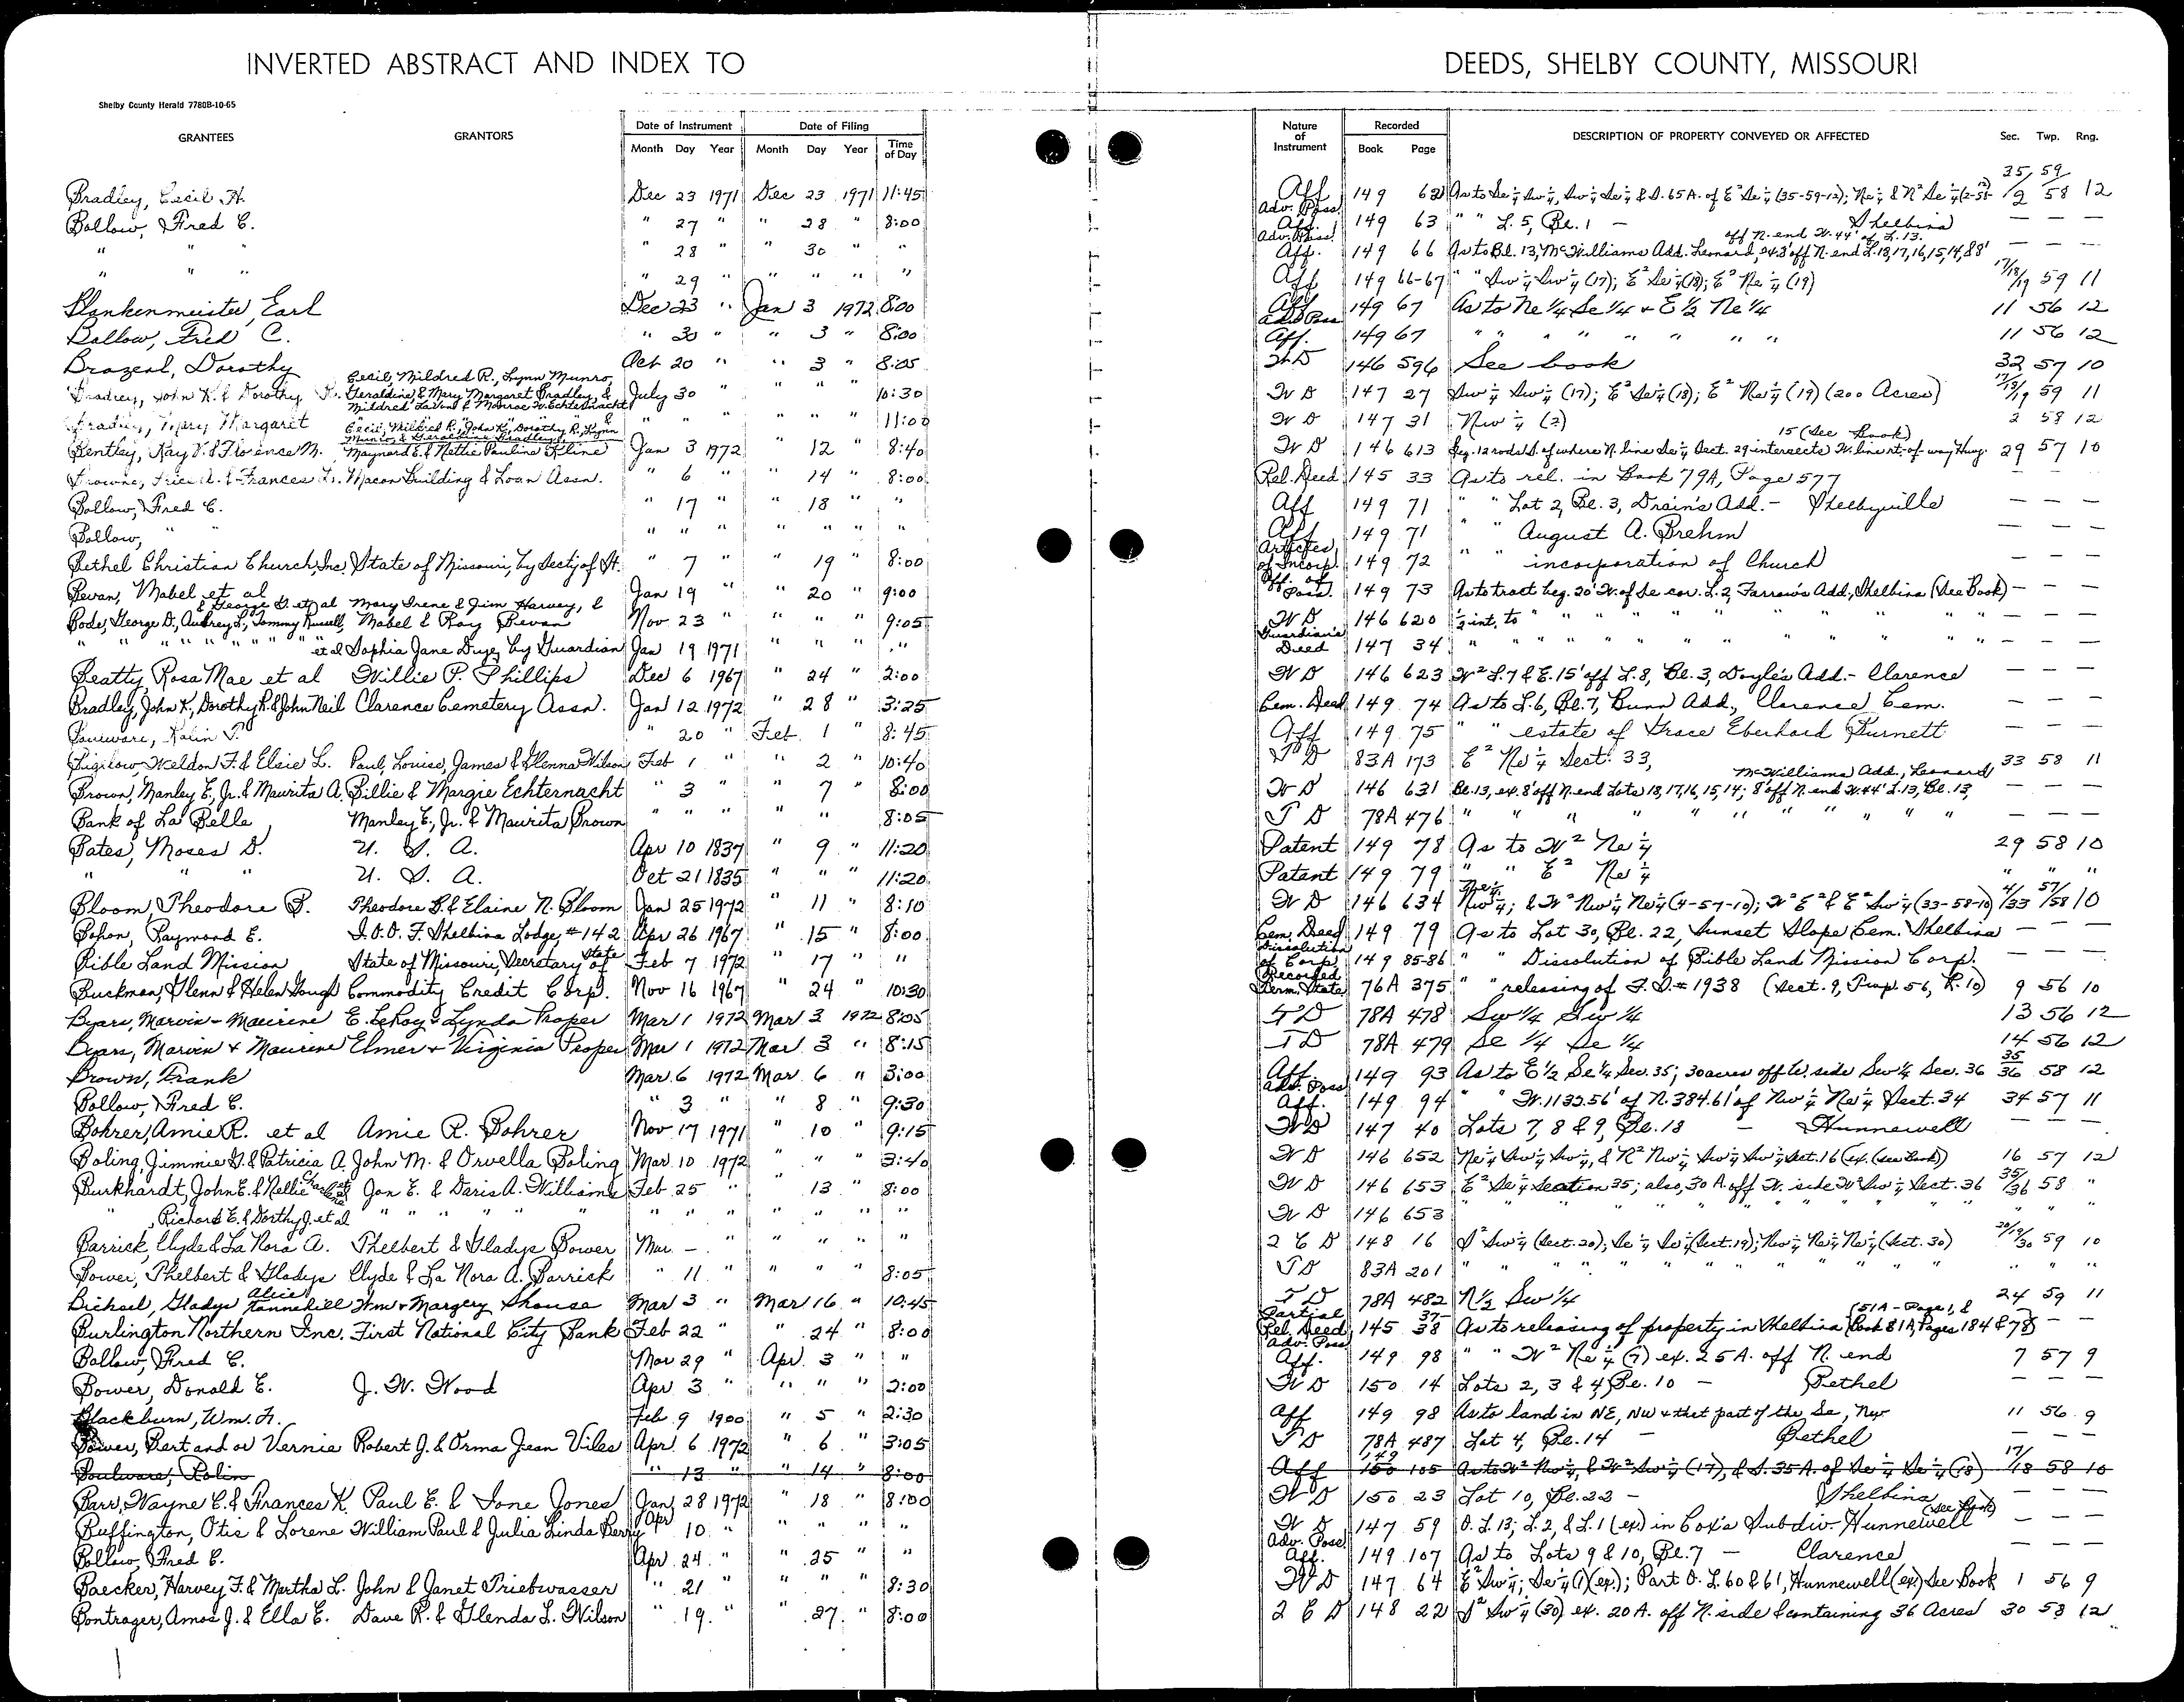 INVERTED ABSTRACT AND INDEX TO DEEDS, SHELBY COUNTY, MISSOURI
Shelby County Herald 7780B-10-65
GRANTEES GRANTORS Date of Instrument Date of Filing Time of Day Nature of Instrument Recorded DESCRIPTION OF PROPERTY CONVEYED OR AFFECTED Sec. Twp. Rng.
Month Day Year Month Day Year Book Page
35 59
Bradley, Cecil H. Dec 23 1971 Dec 23 1971 11:45 Aff 149 63 As to Se ¼ Sw ¼, Sw ¼ Se ¼ & S. 65 A. of E² Se ¼ (35-59-12); Ne ¼ & N² Se ¼ 2 58 12
Bollow, Fred C. " 27 " " 28 " 8:00 Adv. Poss. Aff. 149 63 " " L. 5, Bl. 1 - Shelbina — — —
off N. end W. 44' of L. 13.
" " " " 28 " " 30 " " Adv. Poss. Aff. 149 66 As to Bl. 13, McWilliams Add. Leonard, off N. end L. 18,17,16,15,14, — — —
" " " " 29 " " " " " Aff 149 66-67 " " Sw ¼ Sw ¼ (17); E² Se ¼ (18); E² Ne ¼ (19) 17/18/19 59 11
Blankenmeister, Earl Dec 23 " Jan 3 1972 8:00 Aff 149 67 As to Ne 1/4 Se 1/4 + E 1/2 Ne 1/4 11 56 12
Bollow, Fred C. " 30 " " 3 " 8:00 Adv. Poss Aff. 149 67 " " " " " " " 11 56 12
Brazeal, Dorothy Oct 20 " " 3 " 8:05 W D 146 596 See book 32 57 10
Cecil, Mildred R., Lynn Munro,
Bradley, John K. & Dorothy R. Geraldine & Mary Margaret Bradley, & July 30 " " " " 10:30 W D 147 27 Sw ¼ Sw ¼ (17); E² Se ¼ (18); E² Ne ¼ (19) (200 Acres) 17/18/19 59 11
Mildred LaVon & Monroe W. Echternacht
Bradley, Mary Margaret Cecil, Mildred R., John K., Dorothy R., Lynn & " " " " " " 11:00 W D 147 31 Nw ¼ (2) 2 58 12
Munro, & Geraldine Bradley
15 (See Book)
Bentley, Ray V. & Florence M. Maynard E. & Nettie Pauline Kline Jan 3 1972 " 12 " 8:40 W D 146 613 Beg. 12 rods S. of where N. line Se ¼ Sect. 29 intersects W. line rt.-of-way Hwy. 29 57 10
Browne, & Frances Macon Building & Loan Assn. " 6 " " 14 " 8:00 Rel. Deed 145 33 As to rel. in Book 79A, Page 577 — — —
Bollow, Fred C. " 17 " " 18 " " Aff 149 71 " " Lot 2, Bl. 3, Drain's Add. - Shelbyville — — —
Bollow, " " " " " " " " " Aff 149 71 " " August A. Brehm — — —
Bethel Christian Church, Inc. State of Missouri, by Sect'y of St. " 7 " " 19 " 8:00 Articles of Incorp. 149 72 " " incorporation of Church — — —
Bevan, Mabel et al Jan 19 " " 20 " 9:00 Aff. of Poss. 149 73 As to tract beg. 20' W. of Se cor. L. 2, Farrow's Add., Shelbina (See Book) — — —
& George G. et al Mary Irene & Jim Harvey, &
Bode, George D., Aubrey L., Tommy Russell, Mabel & Ray Bevan Nov 23 " " " " 9:05 W D 146 620 ½ int. to " " " " " " " — — —
" " " " " " " et al Sophia Jane Duye, by Guardian Jan 19 1971 " " " " Guardian's Deed 147 34 " " " " " " " " " — — —
Beatty, Rosa Mae et al Willie P. Phillips Dec 6 1967 " 24 " 2:00 W D 146 623 W² L. 7 & E. 15' off L. 8, Bl. 3, Doyle's Add. - Clarence — — —
Bradley, John K., Dorothy R. & John Neil Clarence Cemetery Assn. Jan 12 1972 " 28 " 3:25 Cem. Deed 149 74 As to L. 6, Bl. 7, Bunn Add., Clarence Cem. — — —
Bouiware, Rolin " 20 " Feb 1 " 8:45 Aff 149 75 " " estate of Grace Eberhard Burnett — — —
Bigelow, Weldon F. & Elsie L. Paul, Louise, James & Glenna Wilson Feb 1 " " 2 " 10:40 T D 83A 173 E² Ne ¼ Sect. 33, 33 58 11
McWilliams Add., Leonard
Brown, Manley E., Jr. & Maurita A. Billie & Margie Echternacht " 3 " " 7 " 8:00 W D 146 631 Bl. 13, ex. 8' off N. end Lots 18,17,16,15,14; 8' off N. end W. 44' L. 13, Bl. 13, — — —
Bank of La Belle Manley E., Jr. & Maurita Brown " " " " " " 8:05 T D 78A 476 " " " " " " " " " — — —
Bates, Moses D. U. S. A. Apr 10 1837 " 9 " 11:20 Patent 149 78 As to W² Ne ¼ 29 58 10
" " " U. S. A. Oct 21 1835 " " " 11:20 Patent 149 79 " " E² Ne ¼ " " "
Bloom, Theodore B. Theodore B. & Elaine N. Bloom Jan 25 1972 " 11 " 8:10 W D 146 634 Nw ¼; & W² Nw ¼ Ne ¼ (4-57-10); W² E² & E² Sw ¼ (33-58-10) 4/33 57/58 10
Bohon, Raymond E. I.O.O.F. Shelbina Lodge, #142 Apr 26 1967 " 15 " 8:00 Cem. Deed 149 79 As to Lot 30, Bl. 22, Sunset Slope Cem. Shelbina — — —
Bible Land Mission State of Missouri, Secretary of State Feb 7 1972 " 17 " " Dissolution of Corp. 149 85-86 " " Dissolution of Bible Land Mission Corp. — — —
Buckman, Glenn & Helen Gough Commodity Credit Corp. Nov 16 1967 " 24 " 10:30 Recorded Term. State. 76A 375 " " releasing of F. S. # 1938 (Sect. 9, Twp. 56, R. 10) 9 56 10
Byars, Marvin - Maurine E. LeRoy & Lynda Proper Mar 1 1972 Mar 3 1972 8:05 T D 78A 478 Sw 1/4 Sw 1/4 13 56 12
Byars, Marvin + Maurine Elmer + Virginia Proper Mar 1 1972 Mar 3 " 8:15 T D 78A 479 Se 1/4 Se 1/4 14 56 12
Brown, Frank Mar. 6 1972 Mar. 6 " 3:00 Aff. 149 93 As to E 1/2 Se 1/4 Sec. 35; 30 acres off W. side Sw 1/4 Sec. 36 35/36 58 12
Bollow, Fred C. " 3 " " 8 " 9:30 Adv. Poss. Aff. 149 94 " " W. 1132.56' of N. 384.61' of Nw ¼ Ne ¼ Sect. 34 34 57 11
Bohrer, Amie R. et al Amie R. Bohrer Nov 17 1971 " 10 " 9:15 W D 147 40 Lots 7, 8 & 9, Bl. 18 - Hunnewell — — —
Boling, Jimmie G. & Patricia A. John M. & Orvella Boling Mar. 10 1972 " " " 3:40 W D 146 652 Ne ¼ Sw ¼ Sw ¼, & N² Nw ¼ Sw ¼ Sw ¼ Sect. 16 (ex. (see Book)) 16 57 12
Burkhardt, John E. & Nellie Charlene et al Jan E. & Daris A. Williams Feb 25 " " 13 " 8:00 W D 146 653 E² Se ¼ Section 35; also, 30 A. off W. side W² Sw ¼ Sect. 36 35/36 58 "
" , Richard E. & Dorthy J. et al " " " " " " " " " " " W D 146 653 " " " " " " " " "
Barrick, Clyde & La Nora A. Thelbert & Gladys Bower Mar. — " " " " " 2 C D 148 16 S² Sw ¼ (Sect. 20); Se ¼ Se ¼ (Sect. 19); Nw ¼ Ne ¼ Ne ¼ (Sect. 30) 20/19/30 59 10
Bower, Thelbert & Gladys Clyde & La Nora A. Barrick " 11 " " " " 8:05 T D 83A 201 " " " " " " " " " "
Bichsel, Gladys Alice Tannehill Wm + Margery Shouse Mar 3 " Mar 16 " 10:45 T D 78A 482 N 1/2 Sw 1/4 24 59 11
(51A - Page 1, &
Burlington Northern Inc. First National City Bank Feb 22 " " 24 " 8:00 Partial Rel. Deed 145 37-38 As to releasing of property in Shelbina (Book 81A, Pages 184 & 78) — —
Bollow, Fred C. Mar 29 " Apr. 3 " " Adv. Poss Aff. 149 98 " " W² Ne ¼ (7) ex. 25 A. off N. end 7 57 9
Bower, Donald E. J. W. Wood Apr 3 " " " " 2:00 W D 150 14 Lots 2, 3 & 4, Bl. 10 - Bethel — — —
Blackburn, Wm. H. Feb. 9 1900 " 5 " 2:30 Aff 149 98 As to land in NE, NW + that part of the Se, Nw 11 56 9
Bower, Bert and or Vernie Robert J. & Orma Jean Viles Apr. 6 1972 " 6 " 3:05 T D 78A 487 Lot 4, Bl. 14 - Bethel — — —
Boulware, Rolin " 13 " " 14 " 8:00 Aff 150 149 105 As to W² Nw ¼, & W² Sw ¼ (17), & S. 35 A. of Se ¼ Se ¼ (18) 17/18 58 10
Barr, Wayne C. & Frances K. Paul E. & Ione Jones Jan 28 1972 " 18 " 8:00 W D 150 23 Lot 10, Bl. 22 - Shelbina — — —
Buffington, Otis & Lorene William Paul & Julia Linda Berry Apr 10 " " " " " W D 147 59 O. L. 13; L. 2, & L. 1 (ex) in Cox's Subdiv. Hunnewell (See Book) — — —
Bollow, Fred C. Apr 24 " " 25 " " Adv. Poss. Aff. 149 107 As to Lots 9 & 10, Bl. 7 - Clarence — — —
Baecker, Harvey F. & Martha L. John & Janet Triebwasser " 21 " " " " 8:30 W D 147 64 E² Sw ¼; Se ¼ (1) (ex.); Part O. L. 60 & 61, Hunnewell (ex.) See Book 1 56 9
Bontrager, Amos J. & Ella E. Dave R. & Glenda L. Wilson " 19 " " 27 " 8:00 2 C D 148 22 S² Sw ¼ (30) ex. 20 A. off N. side & containing 36 Acres 30 58 12